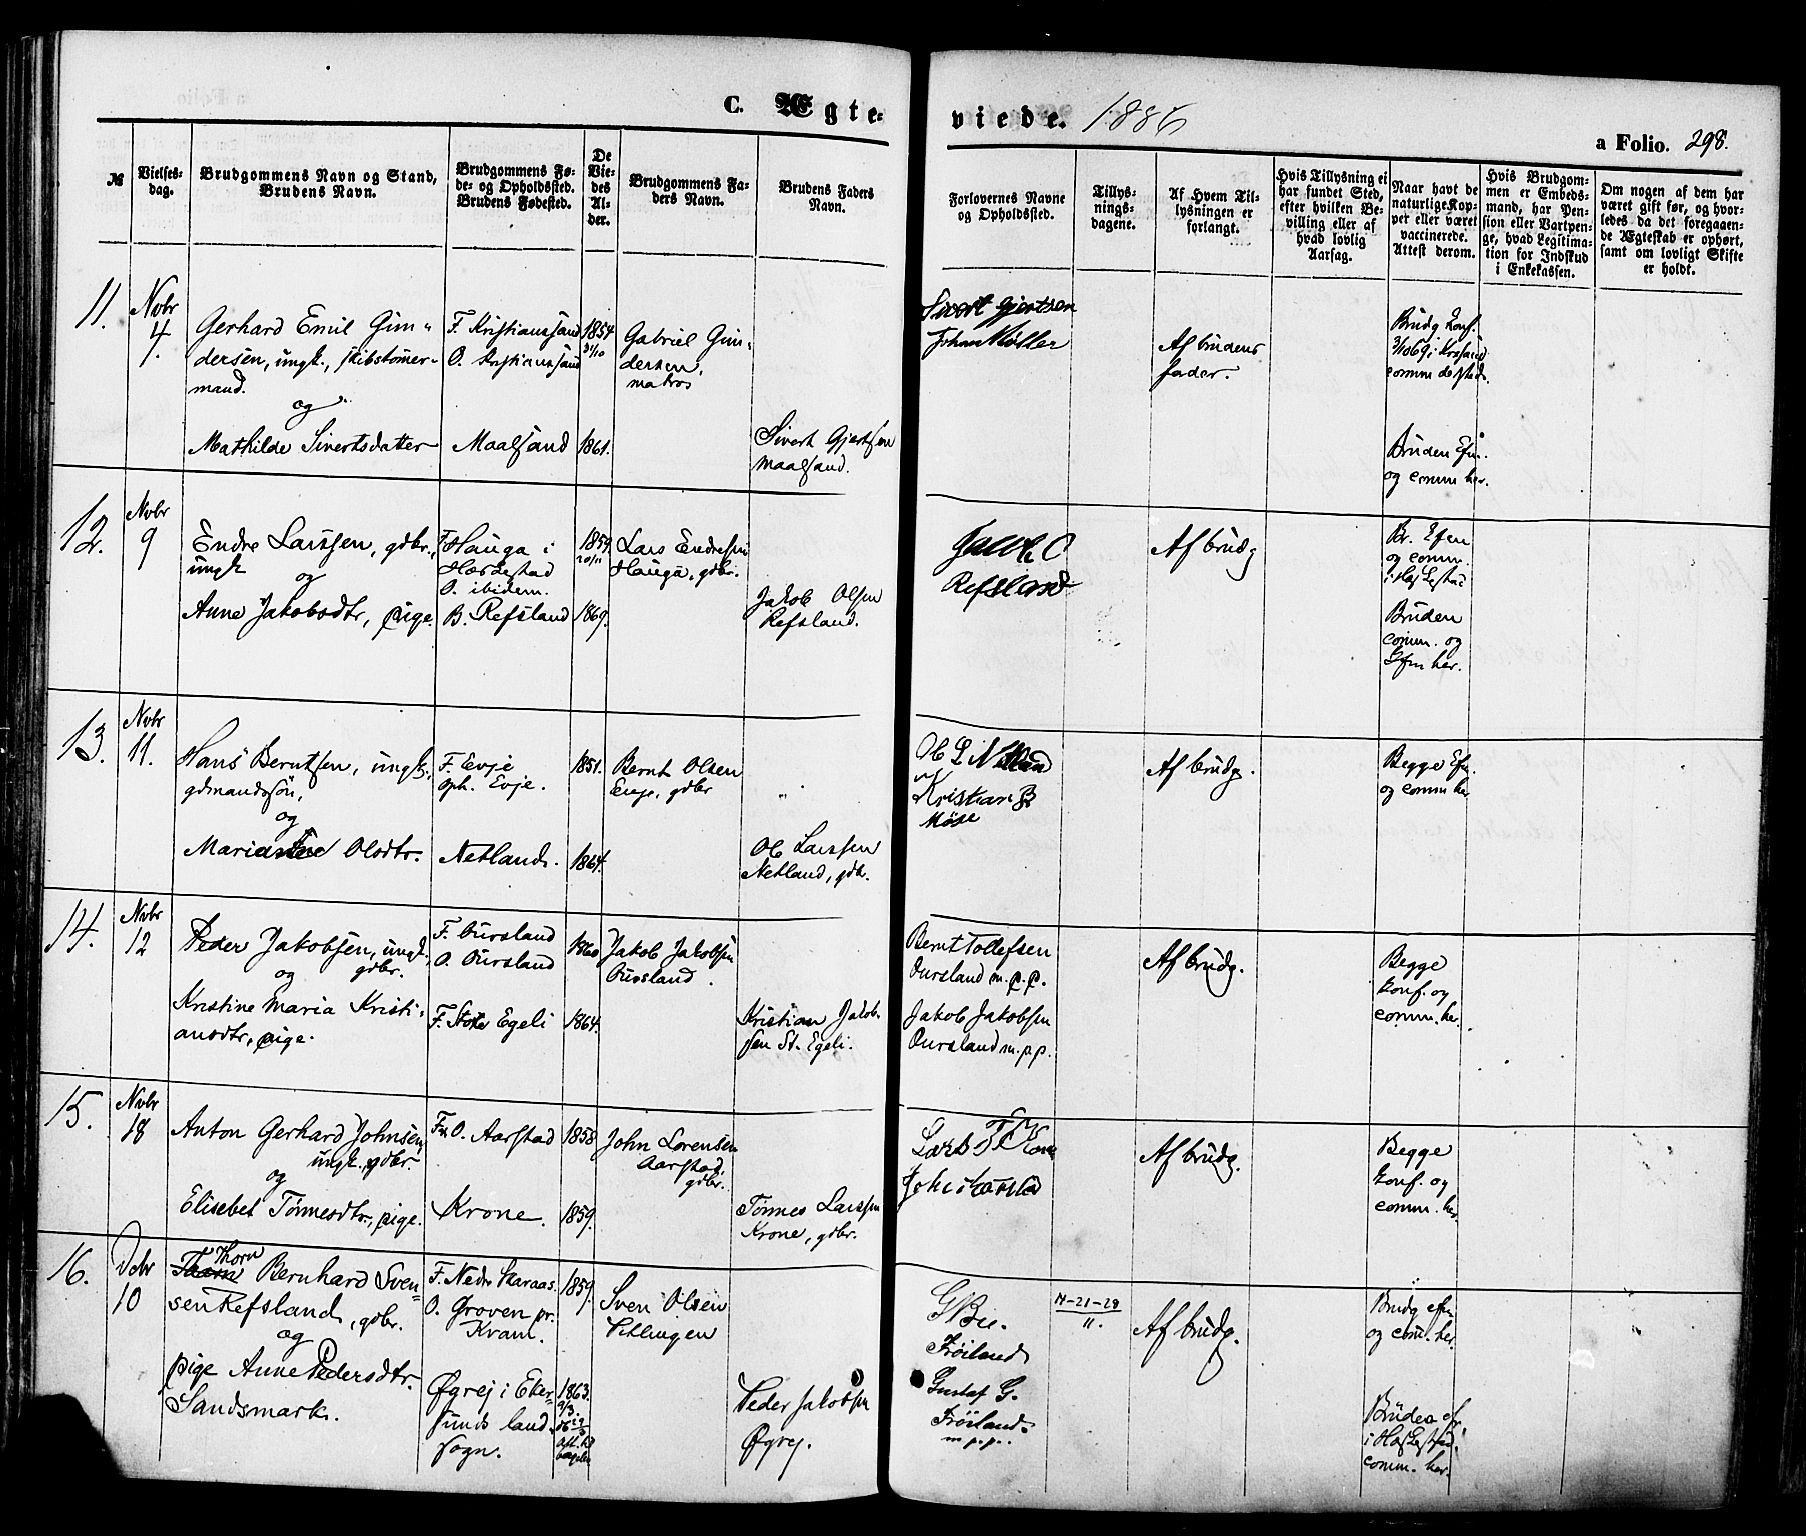 C. Ægte-
viede. 1886
a Folio. 298.
№
Vielses-
dag.
Brudgommens Navn og Stand,
Brudens Navn.
Brudgommens Fø-
de- og Opholdssted.
Brudens Fødested.
De
Vie-
des
Al-
der.
Brudgommens Fa-
ders Navn.
Brudens Faders
Navn.
Forlovernes Navne
og Opholdssted.
Tillys-
nings-
dagene.
Af Hvem Til-
lysningen er
forlangt.
Hvis Tillysning ei
har fundet Sted,
efter hvilken Be-
villing eller af
hvad lovlig
Aarsag.
Naar havt de
naturlige Kop-
per eller været
vaccinerede.
Attest derom.
Hvis Brudgom-
men er Embeds-
mand, har Pen-
sion eller Vartpen-
ge, hvad Legitima-
tion for Indskud
i Enkekassen.
Om nogen af dem har
været gift før, og hvor-
ledes da det foregaaen-
de Ægteskab er ophørt,
samt om lovligt Skifte
er holdt.
11.
Nvbr
4.
Gerhard Emil Gun-
dersen, ungk., skibstømer-
mand.
og
Mathilde Sivertsdatter
F. Kristianssand
O. Kristianssand
Maalsand
1854
31/10
1861.
Gabriel Gun-
dersen,
matros
Sivert Gjertsen
Maalsand.
Sivert Gjertsen
Johan Møller
Af brudens
fader.
Brudg konf.
3/10 69 i Krsand
comm dested.
Bruden Efn.
og comm her.
12.
Nvbr
9
Endre Larssen, gdbr.,
ungk
og
Anne Jakobsdtr, pige.
F. Hauga i
Hærdestad
O. ibidem.
B. Refsland
1859.
20/11
1869.
Lars Endresen
Hauga, gdbr.
Jakob Olsen
Refsland.
Jacob O
Refsland
Af brudg
Br. Efen
og comm.
Bruden
comm. og
Efn her.
13.
Nvbr
11.
Hans Berntsen, ungk,
gdmandssøn,
og
Olsdtr.
F. Evje
oph. Evje.
Netland.
1851.
1864.
Bernt Olsen
Evje, gdbr
Ole Larssen
Netland, gdbr.
Ole L Netland
Kristian B
Møse
Af brudg.
Begge Efn.
og comm her
14.
Nvbr
12
Peder Jakobsen, ungk,
og gdbr.
Kristine Maria Kristi-
ansdtr, pige.
F. Oursland
O. Oursland
F. Store Egeli
1860
1864.
Jakob Jakobsen
Oursland.
Kristian Jakob-
sen St. Egeli.
Bernt Tollefsen
Oursland m.p.p.
Jakob Jakobsen
Oursland m.p.p.
Af brudg.
Begge
konf. og
comm. her.
15.
Nvbr
18
Anton Gerhard Johnsen,
ungk., gdbr.
og
Elisebet Tønnesdtr., pige.
F. O. Aarstad
Krone.
1858
1859.
John Lorensen
Aarstad.
gdbr.
Tønnes Larssen
Krone, gdbr.
Lars T Krone
Af brudg.
Begge
konf. og
comm. her
16.
Dcbr
10
Thorn
Bernhard Sven-
sen Refsland, gdbr.
og
pige Anne Pedersdtr.
Sandsmark.
F. Nedre Skaraas.
O. Groven pr.
Kram.
Øgrej i Eker-
sunds land-
sogn.
1859.
1863.
Sven Olsen
Peder Jakobsen
Øgrej.
Frøiland
Gustaf G.
Frøiland.
m.p.p.
14-21-28
11.
Af brudg.
Brudg efn
og com. her.
Bruden ef.
comm. her.